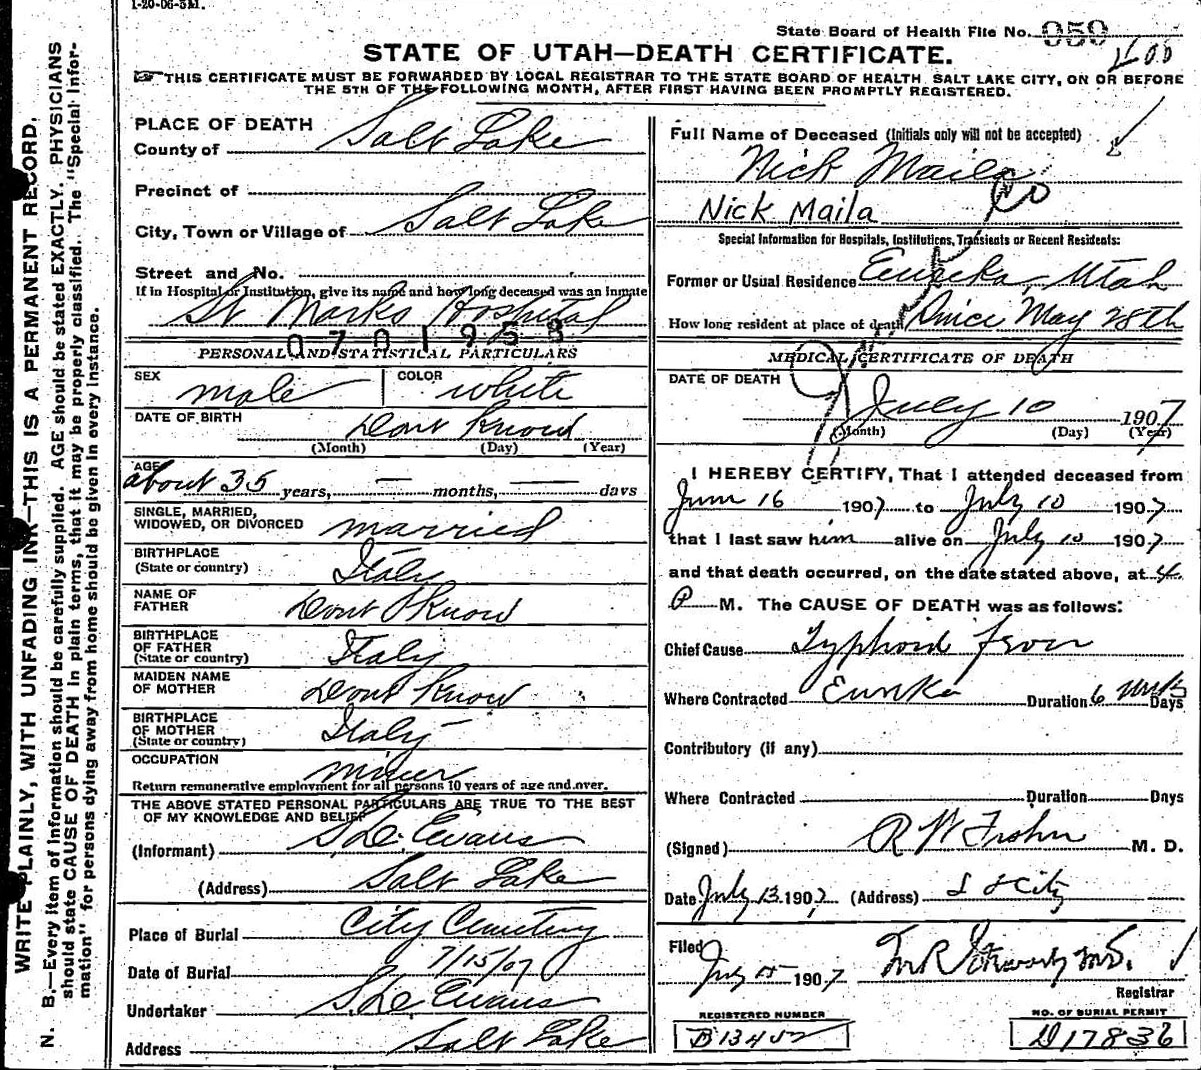 1-20-06-5M.
State Board of Health File No. 959
STATE OF UTAH—DEATH CERTIFICATE.
THIS CERTIFICATE MUST BE FORWARDED BY LOCAL REGISTRAR TO THE STATE BOARD OF HEALTH, SALT LAKE CITY, ON OR BEFORE
THE 5TH OF THE FOLLOWING MONTH, AFTER FIRST HAVING BEEN PROMPTLY REGISTERED.
WRITE PLAINLY, WITH UNFADING INK—THIS IS A PERMANENT RECORD.
N. B.—Every item of information should be carefully supplied. AGE should be stated EXACTLY. PHYSICIANS
should state CAUSE OF DEATH in plain terms, that it may be properly classified. The "Special Infor-
mation" for persons dying away from home should be given in every instance.
PLACE OF DEATH
County of Salt Lake
Precinct of
City, Town or Village of Salt Lake
Street and No.
If in Hospital or Institution, give its name and how long deceased was an inmate
St Marks Hospital
0701958
PERSONAL AND STATISTICAL PARTICULARS
SEX male COLOR white
DATE OF BIRTH Dont Know
(Month) (Day) (Year)
AGE about 35 years, — months, — days
SINGLE, MARRIED,
WIDOWED, OR DIVORCED married
BIRTHPLACE
(State or country) Italy
NAME OF
FATHER Dont Know
BIRTHPLACE
OF FATHER
(State or country) Italy
MAIDEN NAME
OF MOTHER Dont Know
BIRTHPLACE
OF MOTHER
(State or country) Italy
OCCUPATION miner
Return remunerative employment for all persons 10 years of age and over.
THE ABOVE STATED PERSONAL PARTICULARS ARE TRUE TO THE BEST
OF MY KNOWLEDGE AND BELIEF
(Informant) S. D. Evans
(Address) Salt Lake
Place of Burial City Cemetery
Date of Burial 7/15/07
Undertaker S. D. Evans
Address Salt Lake
Full Name of Deceased (Initials only will not be accepted)
Nick Maila
Nick Maila
Special Information for Hospitals, Institutions, Transients or Recent Residents:
Former or Usual Residence Eureka, Utah
How long resident at place of death Since May 28th
MEDICAL CERTIFICATE OF DEATH
DATE OF DEATH
July 10 1907
(Month) (Day) (Year)
I HEREBY CERTIFY, That I attended deceased from
June 16 1907 to July 10 1907
that I last saw him alive on July 10 1907
and that death occurred, on the date stated above, at 4
P M. The CAUSE OF DEATH was as follows:
Chief Cause Typhoid Fever
Where Contracted Eureka Duration 6 wks Days
Contributory (if any)
Where Contracted Duration Days
(Signed) R W Frohn M. D.
Date July 13 1907 (Address) S L City
Filed July 15 1907
Registrar
REGISTERED NUMBER
NO. OF BURIAL PERMIT
D17836